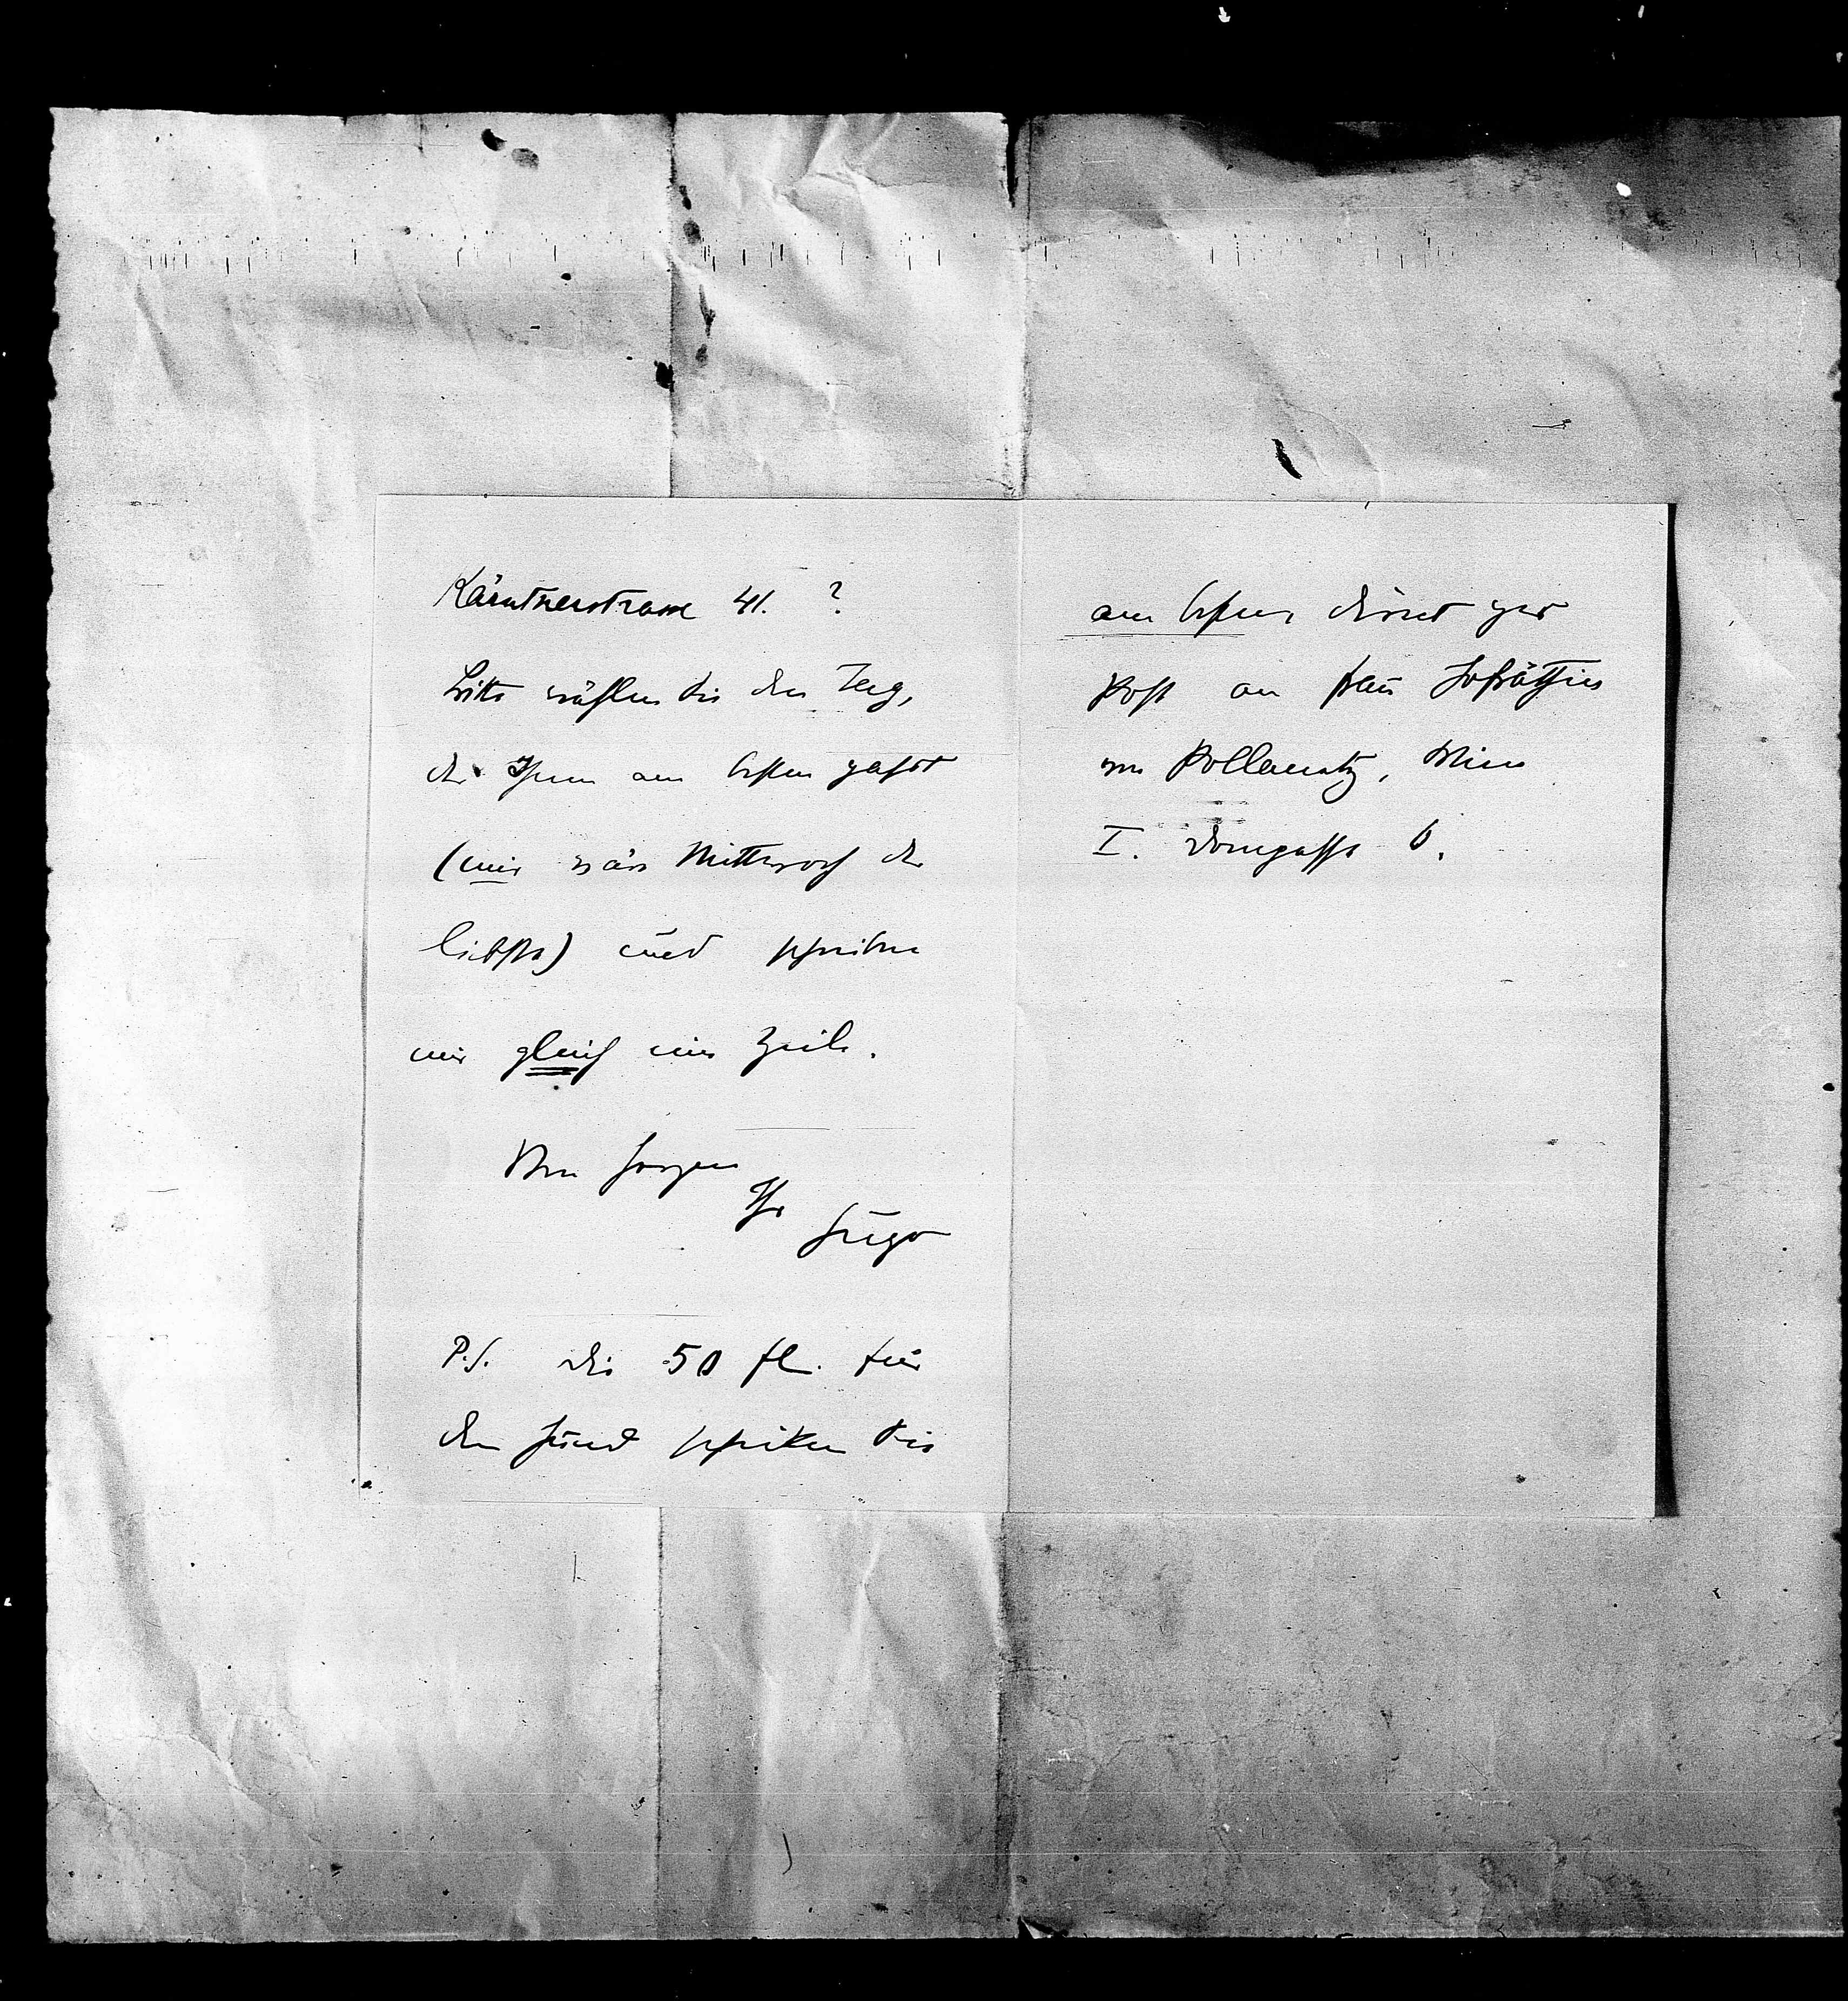 Kärntnerstrasse 41. ?
Bitte wählen Sie den Tag,
der Ihnen am besten passt
(mir wäre Mittwoch der
liebste) und schreiben
mir gleich eine Zeile.
Von Herzen
Ihr
Hugo
P.S. Die 50 fl. für
den Fund schicken Sie
am besten direct per
Post an Frau Hofräthin
von Wien
I. Domgasse 6.